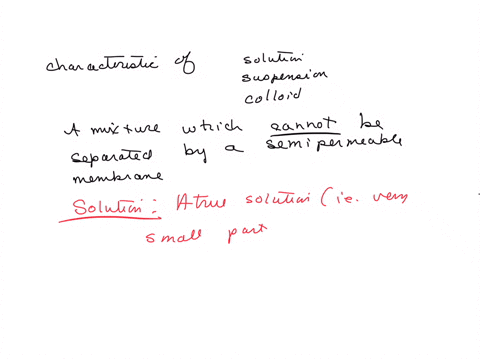 characteristic of solution
suspension
colloid
A mixture which cannot be
separated by a semipermeable
membrane
Solution: A true solution (i.e. very
small part